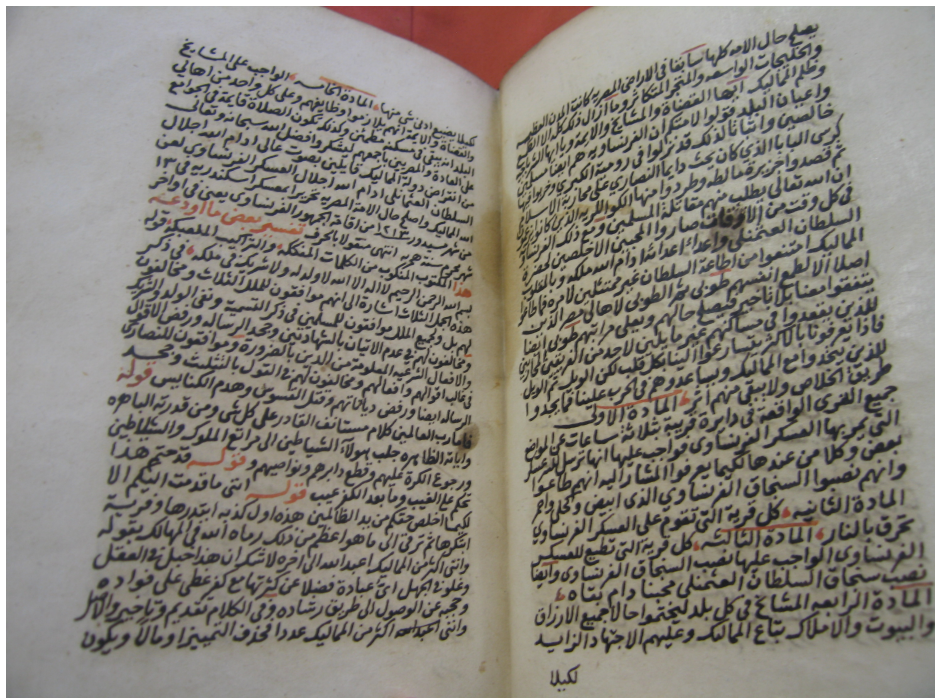 يصلح حال الامه كلها سابقا فى الاراضى المصريه كانت المدن العظيمه
والخليجات الواسعه والمتجر المتكاثر وما ازال ذلك كله الا الطمع
وظلم المماليك ايها القضاة والمشايخ والايمه ويا ايها الشربجيه
واعيان البلد قولوا لامتكم ان الفرنساويه هم ايضا مسلمين
خالصين واثباتا لذلك قد نزلوا فى رومية الكبرى وخربوا فيها
كرسى البابا الذى كان يحث دايما النصارى على محاربة الاسلام
ثم قصدوا جزيرة مالطه وطردوا منها الكواليريه الذين كانوا يزعموا
ان الله تعالى يطلب منهم مقاتلة المسلمين ومع ذلك الفرنساويه
فى كل وقت من الاوقات صاروا المحبين الاخلصين لحضرة
السلطان العثمنلى واعداء اعدائه ادام الله ملكه وبالمقلوب
المماليك امتنعوا من اطاعة السلطان غير ممتثلين لامره فما طاعوا
اصلا الا لطمع انفسهم طوبى ثم الطوبى لاهالى مصر الذين
يتفقوا معنا بلا تاخير فيصلح حالهم ويعلى مراتبهم طوبى ايضا
للذين يقعدوا فى مساكنهم غير مايلين لاحد من الفريقين المحاربين
فاذا يعرفونا بالاكثر يتسارعوا الينا بكل قلب لكن الويل ثم الويل
للذين يتحدوا مع المماليك ويساعدوهم فى الحرب علينا فما يجدوا
طريق الخلاص ولا يبقى منهم اثر المادة الاولى
جميع القرى الواقعة فى دايرة قريبة بثلاثة ساعات عن المواضع
التى يمر بها العسكر الفرنساوى فواجب عليها انها ترسل للسرعسكر
بعض وكلا من عندها لكيما يعرفوا المشار اليه انهم طاعوا
وانهم نصبوا السنجاق الفرنساوى الذى ابيض وكحلى واحمر
المادة الثانيه كل قرية التى تقوم على العسكر الفرنساوى
تحرق بالنار المادة الثالثه كل قرية التى تطيع للعسكر
الفرنساوى الواجب عليها نصب السنجاق الفرنساوى وايضا
نصب سنجاق السلطان العثمنلى محبنا دام بقاه
المادة الرابعه المشايخ فى كل بلد ليختموا حالا جميع الارزاق
والبيوت والاملاك بتاع المماليك وعليهم الاجتهاد الزايد
لكيلا
كيلا يضيع ادنى شى منها المادة الخامسه الواجب على المشايخ
والقضاة والايمه انهم يلازموا وظايفهم وعلى كل واحد من اهالى
البلد انه يبقى فى مسكنه مطمئن وكذلك تكون الصلاة قايمة فى الجوامع
على العادة والمصريين باجمعهم لتشكر وافضل الله سبحانه وتعالى
من انقراض دولة المماليك قايلين بصوت عالى ادام الله اجلال
السلطان العثمانلى ادام الله اجلال العسكر الفرنساوى لعن
الله المماليك واصلح حال الامة المصريه تحريرا بمعسكر اسكندريه فى ١٣
من شهر مسيدور ١٢١٣ من اقامة الجمهور الفرنساوى يعنى فى اواخر
شهر محرم سنه هجريه انتهى منقولا بالحرف تفسير بعض ما اودعه
هذا المكتوب المنكوب من الكلمات المفككة والتراكيب الملعبكة قوله
بسم الله الرحمن الرحيم لا اله الا الله لا ولد له ولا شريك فى ملكه فى ذكر
هذه الجمل الثلاث اشارة الى انهم موافقون للملل الثلاث ومخالفون
لهم بل ولجميع الملل موافقون للمسلمين فى ذكر التسمية ونفى الولد والشريك
ومخالفون لهم فى عدم الاتيان بالشهادتين وجحد الرساله ورفض الاقوال
والافعال الشرعيه المعلومة من الدين بالضروره وموافقون للنصارى
فى غالب اقوالهم وافعالهم ومخالفون لهم فى القول بالتثليث وجحد
الرساله ايضا ورفض دياناتهم وقتل القسوس وهدم الكنايس قوله
فاما رب العالمين كلام مستانف القادر على كل شى ومن قدرته الباهره
واياته الظاهره جلب هولاء الشياطين الى مراتع الملوك والسلاطين
ورجوع الكرة عليهم وقطع دابرهم ونواصيهم وقوله قد حتم هذا
تحكم على الغيب وما بعد الكفر عيب قوله اننى ما قدمت اليكم الا
لكيما اخلص حقكم من يد الظالمين هذه اول كذبه ابتدرها وفرية
ابتكرها ثم ترقى الى ما هو اعظم من ذلك رماه الله فى المهالك بقوله
واننى اكثر من المماليك اعبد الله الى اخره لا شك ان هذا خبل فى العقل
وغلو فى الجهل اى عبادة فضلا عن كثرتها مع كفر غطى على فواده
وحجبه عن الوصول الى طريق رشاده وفى الكلام تقديم وتاخير والاصل
واننى اعبد الله اكثر من المماليك عددا فحذف التمييز او مالا ويكون